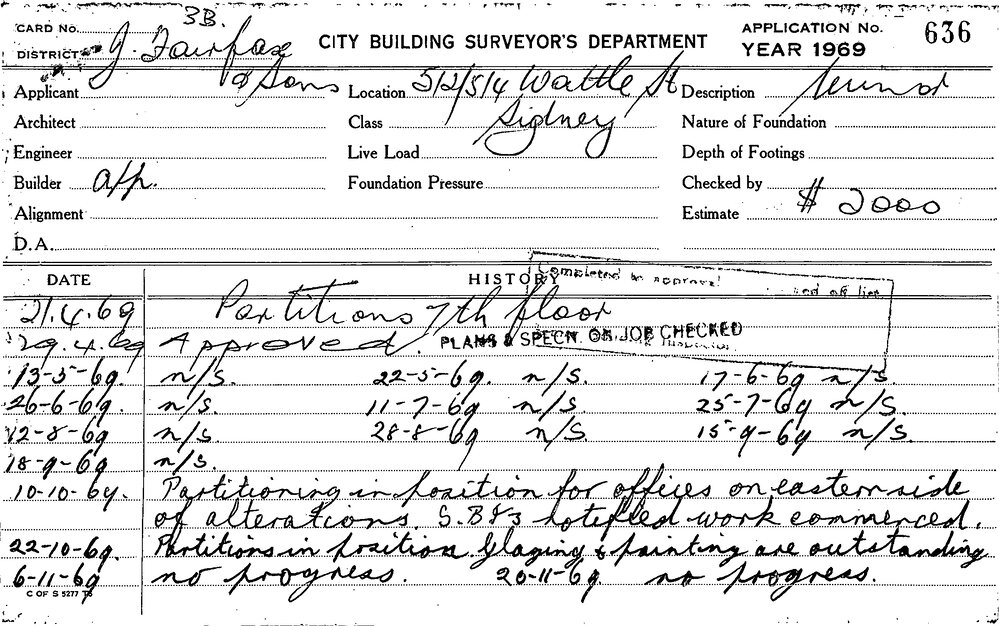 3B.
CARD No. APPLICATION No. 636
DISTRICT CITY BUILDING SURVEYOR'S DEPARTMENT YEAR 1969
J. Fairfax
Applicant & Sons Location 512/514 Wattle St Description
Architect Class Sidney Nature of Foundation
Engineer Live Load Depth of Footings
Builder app. Foundation Pressure Checked by
Alignment Estimate $ 2000
D.A.
DATE HISTORY Completed to approval
21.4.69 Partitions 7th floor
29.4.69 Approved. PLANS & SPECN. ON JOB CHECKED
13-5-69. n/S. 22-5-69. n/S. 17-6-69 n/S.
26-6-69. n/S. 11-7-69 n/S. 25-7-69 n/S.
12-8-69 n/S. 28-8-69 n/S. 15-9-69 n/S.
18-9-69 n/S.
10-10-69. Partitioning in position for offices on eastern side
of alterations. notified work commenced.
22-10-69. Partitions in position. Glazing & painting are outstanding
6-11-69 no progress. 20-11-69 no progress.
C OF S 5277 TS